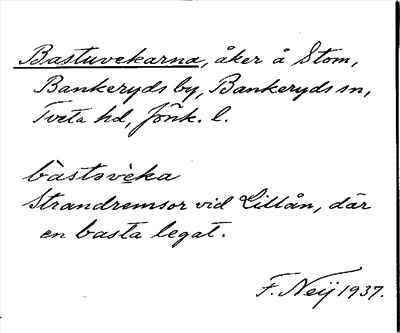 Bastuvekarna, åker å Stom,
Bankeryds by, Bankeryds sn,
Tveta hd, Jönk. l.
bàstəvè̱ka
Strandremsor vid Lillån, där
en basta legat.
F. Neij 1937.